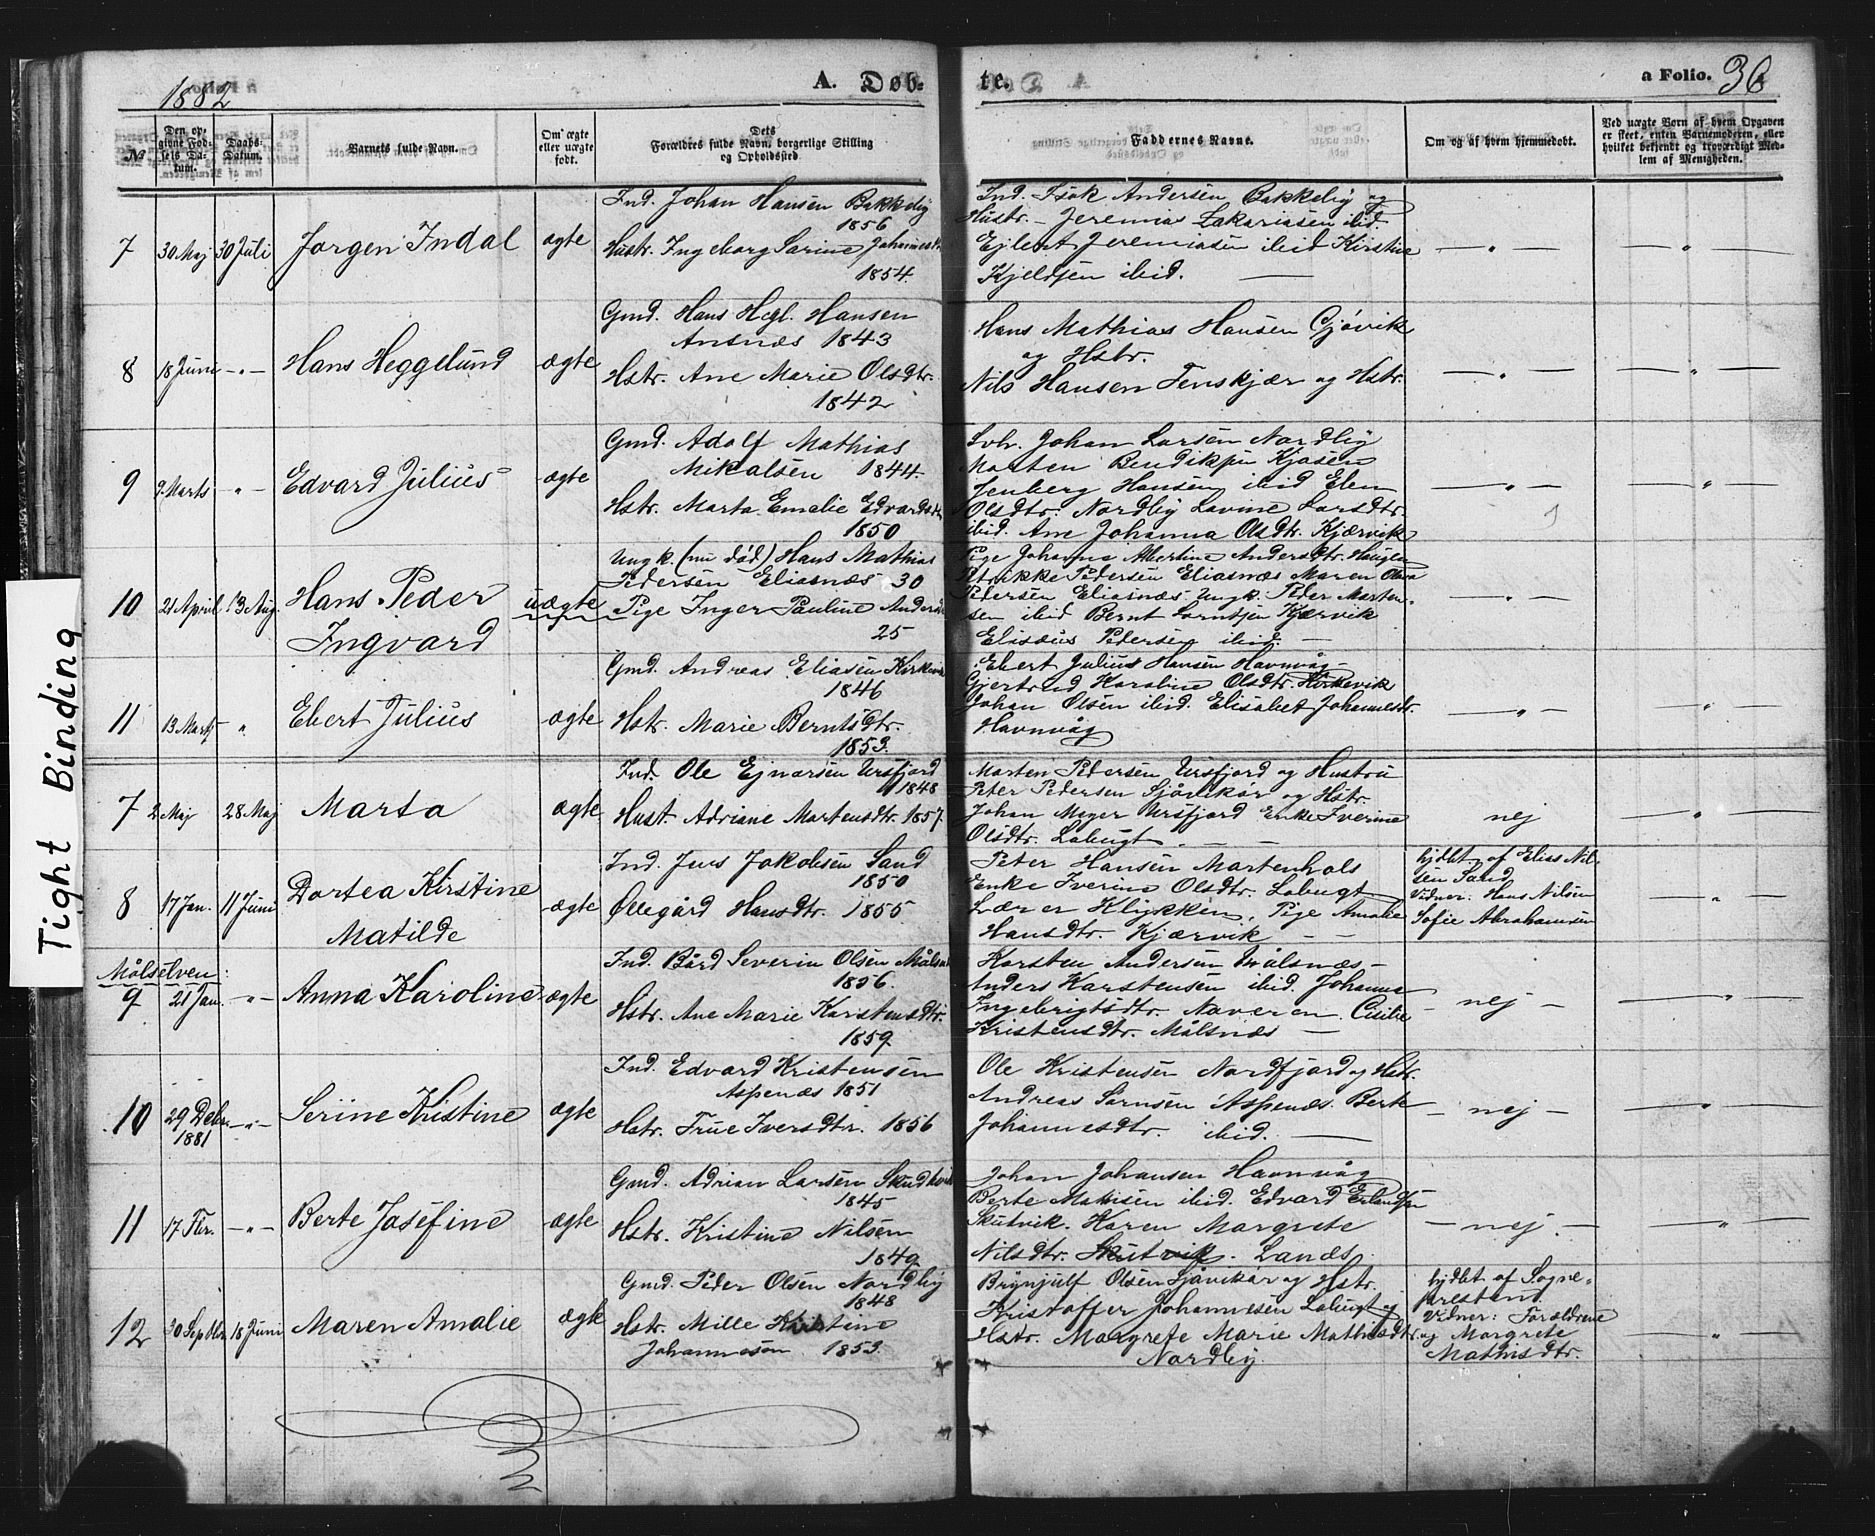 1882
A. Døb-
te.
a Folio. 36
No
Den opgivne Fødsels Datum.
Daabs-Datum.
Barnets fulde Navn.
Om ægte eller uægte født.
Dets Forældres fulde Navn, borgerlige Stilling og Opholdssted.
Faddernes Navne.
Om og af hvem hjemmedøbt.
Ved uægte Børn af hvem Opgaven er skeet, enten Barnemoderen, eller hvilket bekjendt og troværdigt Medlem af Menigheden.
Tight Binding
7 30 Maj 30 Juli Jørgen Indal ægte
Ind. Johan Hansen Bakkeby
1856
Hustr. Ingeborg Sarine Johannesdtr
1854.
Ind. Isak Andersen Bakkeby og
Hustr. - Jeremias Zakariasen ibid.
Ejlert Jeremiasen ibid Kirstine
Kjeldsen ibid.
— " —
— " —
8 18 Juni — " — Hans Heggelund ægte
Gmd. Hans Hegl. Hansen
Ansnæs 1843
Hstr. Ane Marie Olsdtr.
1842
Hans Mathias Hansen Gjøvik
og Hstr.
Nils Hansen Tenskjær og Hstr.
— " —
— " —
9 9 Marts — " — Edvard Julius ægte
Gmd. Adolf Mathias
Mikalsen 1844
Hstr. Marta Emelie Edvardsdtr
1850
Johan Larsen Nordby
Morten Bendiksen Kjosen
Jenberg Hansen ibid Elen
Olsdtr. Nordby Lavine Larsdtr.
ibid. Ane Johanna Olsdtr. Kjærvik
— " —
— " —
10 21 April 13 Aug. Hans Peder
Ingvard
uægte
Ungk. (nu død) Hans Mathias
Pedersen Eliasnæs 30
Pige Inger Pauline Andersd
25
Pige Johanna Albertine Andersdtr.
Pedersen Eliasnæs Maren
Pedersen Eliasnæs Ungk. Peder Morten-
sen ibid Bernt Kjærvik
Elisæus Pedersen ibid. —
— " —
— " —
11 13 Marts " Ebert Julius ægte
Gmd. Andreas Eliasen Kirkevik
1846
Hstr. Marie Berntsdtr.
1853.
Ebert Julius Hansen Havnvåg -
Gjertrud Karoline Olsdtr. Kirkevik
Johan Olsen ibid. Elisabet Johannesdtr.
Havnvåg
— " —
— " —
7 2 Maj 28 Maj Marta ægte
Ind. Ole Ejnarsen Ursfjord
1848
Hust. Adriane Mortensdtr. 1857.
Morten Pedersen Ursfjord og Hustru
Peter Pedersen Sjåvikør og Hstr.
Johan Meyer Ursfjord Enke Iverine
Olsdtr. Labugt
nej
— " —
8 17 Jan. 11 Juni Dortea Kirstine
Matilde
ægte
Ind. Jens Jakobsen Sand
1850
Øllegård Hansdtr. 1855
Peter Hansen Martenhals
Enke Iverine Olsdtr. Labugt
Lærer Klykken. Pige Amalie
Hansdtr. Kjærvik — —
hjdbt. af Elias Nil-
sen Sand
Vidner: Hans Nilsen
Sofie Abrahamsen
— " —
Målselven:
9 21 Jan. — " — Anna Karoline ægte
Ind. Bård Severin Olsen Målsnæs
1856.
Hstr. Ane Marie Karstensdtr.
1859.
Karsten Andersen Målsnæs —
Anders Karstensen ibid. Johanna
Ingebrigtsdtr. Naveren. Cisilie
Kristensdtr. Målsnæs —
- nej -
— " —
10 29 Debr.
1881 — " — Serine Kristine ægte
Ind. Edvard Kristensen
Aspenæs 1851
Hstr. True Iversdtr. 1856
Ole Kristensen Nordfjord og Hstr.
Andreas Sørnsen Aspenæs. Berte
Johannesdtr. ibid. —
- nej -
— " —
11 17 Fbr. — " — Berte Josefine ægte
Gmd. Adrian Larsen Skudtvik
1845
Hstr. Kristine Nilsen
1849
Johan Johansen Havnvåg
Berte Mathisen ibid. Edvard Erlandsen
Skutvik. Karen Margrete
Nilsdtr. Skutvik. Lanæs.
- nej. -
— " —
12 30 Septbr. 18 Juni Maren Amalie ægte
Gmd. Peder Olsen Nordby
1848
Hstr. Mille Kristine
Johannesen 1853.
Brynjulf Olsen Sjåvikør og Hstr.
Kristoffer Johannesen Labugt og
Hstr. Margrete Marie Mathisdtr.
Nordby.
hjdbt af Sogne-
præsten.
Vidner: Forældrene
og Margrete
Mathisdtr.
— " —